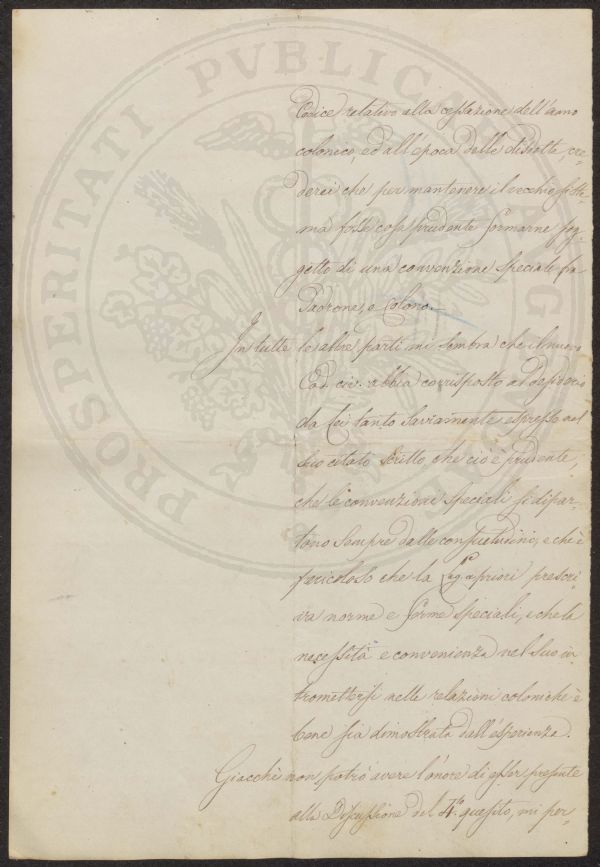 Codice relativo alla cessazione dell'anno
colonico, ed all'epoca delle disdette, cre=
derei che per mantenere il vecchio siste=
ma fosse cosa prudente formarne sog=
getto di una convenzione speciale fra
Padrone, e Colono.—
In tutte le altre parti mi sembra che il nuovo
Cod. civ. abbia corrisposto al desiderio
da Lei tanto saviamente espresso nel
suo citato scritto, che cioè è prudente,
che le convenzioni speciali si dipar=
tono sempre dalle consuetudini, e che è
pericoloso che la Leg. a priori prescri=
va norme e forme speciali, e che la
necessità e convenienza nel suo in
tromettersi nelle relazioni coloniche è
bene sia dimostrata dall'esperienza.
Giacchè non potrò avere l'onore di esser presente
alla Discussione del 4.to quesito, mi per=
PROSPERITATI PVBLICAE